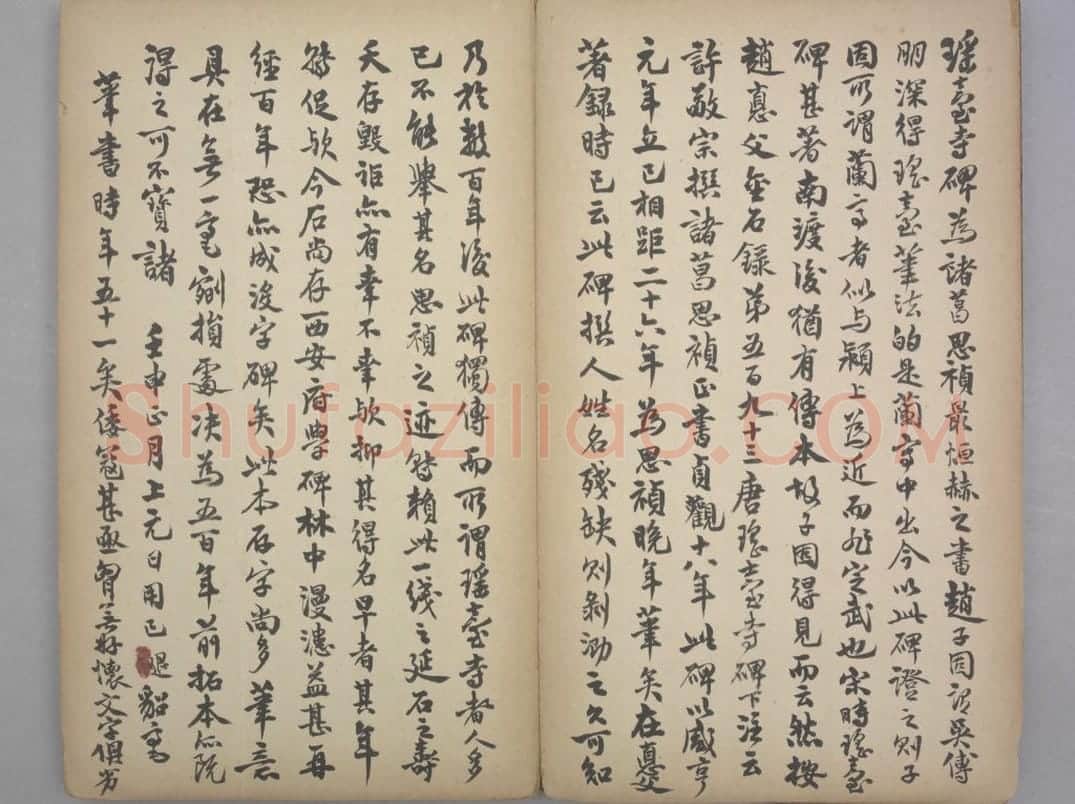 瑶臺寺碑為諸葛思禎最恒赫之書趙子固謂吳傅
朋深得瑤臺筆法的是蘭亭中出今以此碑證之則子
固所謂蘭亭者似与潁上為近而非定武也宋時瑤臺
碑甚著南渡後猶有傳本故子固得見而云然按
趙惪父金石錄第五百九十三唐瑤臺寺碑下注云
許敬宗撰諸葛思禎正書貞觀十八年此碑以咸亨
元年立已相距二十六年為思禎晚年筆矣在惪父
著錄時已云此碑撰人姓名殘缺則剝泐之久可知
乃於數百年後此碑獨傳而所謂瑤臺寺者人多
已不能舉其名思禎之迹特賴此一綫之延石之壽
夭存毀詎亦有幸不幸欤抑其得名早者其年
特促欤今石尚存西安府學碑林中漫漶益甚再
經百年恐亦成没字碑矣此本存字尚多筆意
具在無一毫剜損處决為五百年前拓本亦既
得之可不寶諸 壬申正月上元日用已退貂毫
筆書時年五十一矣倭寇甚亟胸無好懷文字俱劣
Shufaziliao.COM